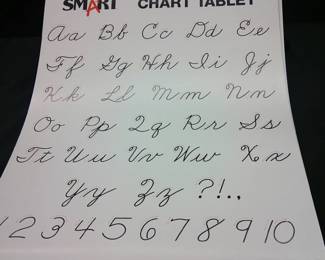 SMART CHART TABLET
Aa Bb Cc Dd Ee
Ff Gg Hh Ii Jj
Kk Ll Mm Nn
Oo Pp Qq Rr Ss
Tt Uu Vv Ww Xx
Yy Zz ?!.,
1 2 3 4 5 6 7 8 9 10